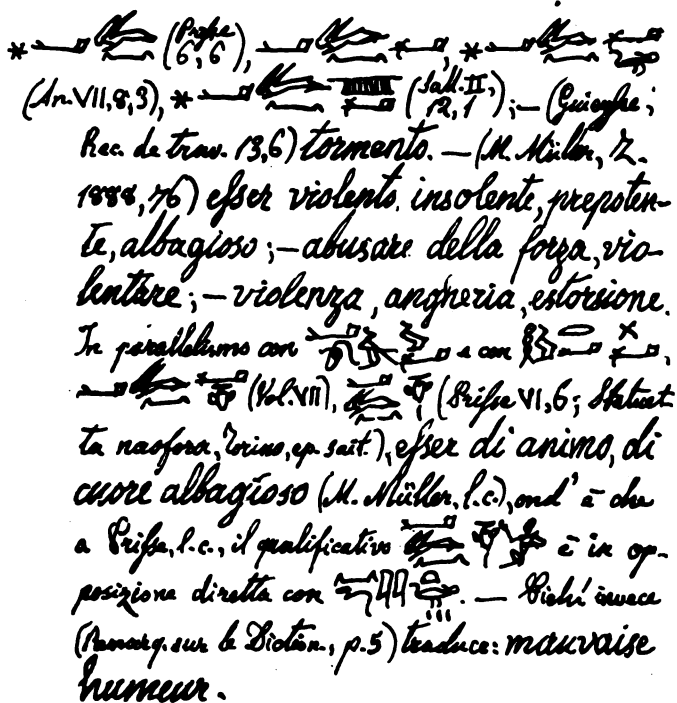 * (Prisse 6, 6), , *
(An. VII, 8, 3), * (Sall. II, 12, 1); — (Guieysse;
Rec. de trav. 13, 6) tormento. — (M. Müller, Z.
1888, 76) esser violento, insolente, prepoten-
te, albagioso; — abusare della forza, vio-
lentare; — violenza, angheria, estorsione.
In parallelismo con e con ,
(Vol. VII), (Prisse VI, 6; Statuet-
ta naofora, Torino, ep. sait.), esser di animo, di
cuore albagioso (M. Müller, l.c.), ond' è che
a Prisse, l.c., il qualificativo è in op-
posizione diretta con . — invece
(Remarq. sur le Diction., p. 5) traduce: mauvaise
humeur.